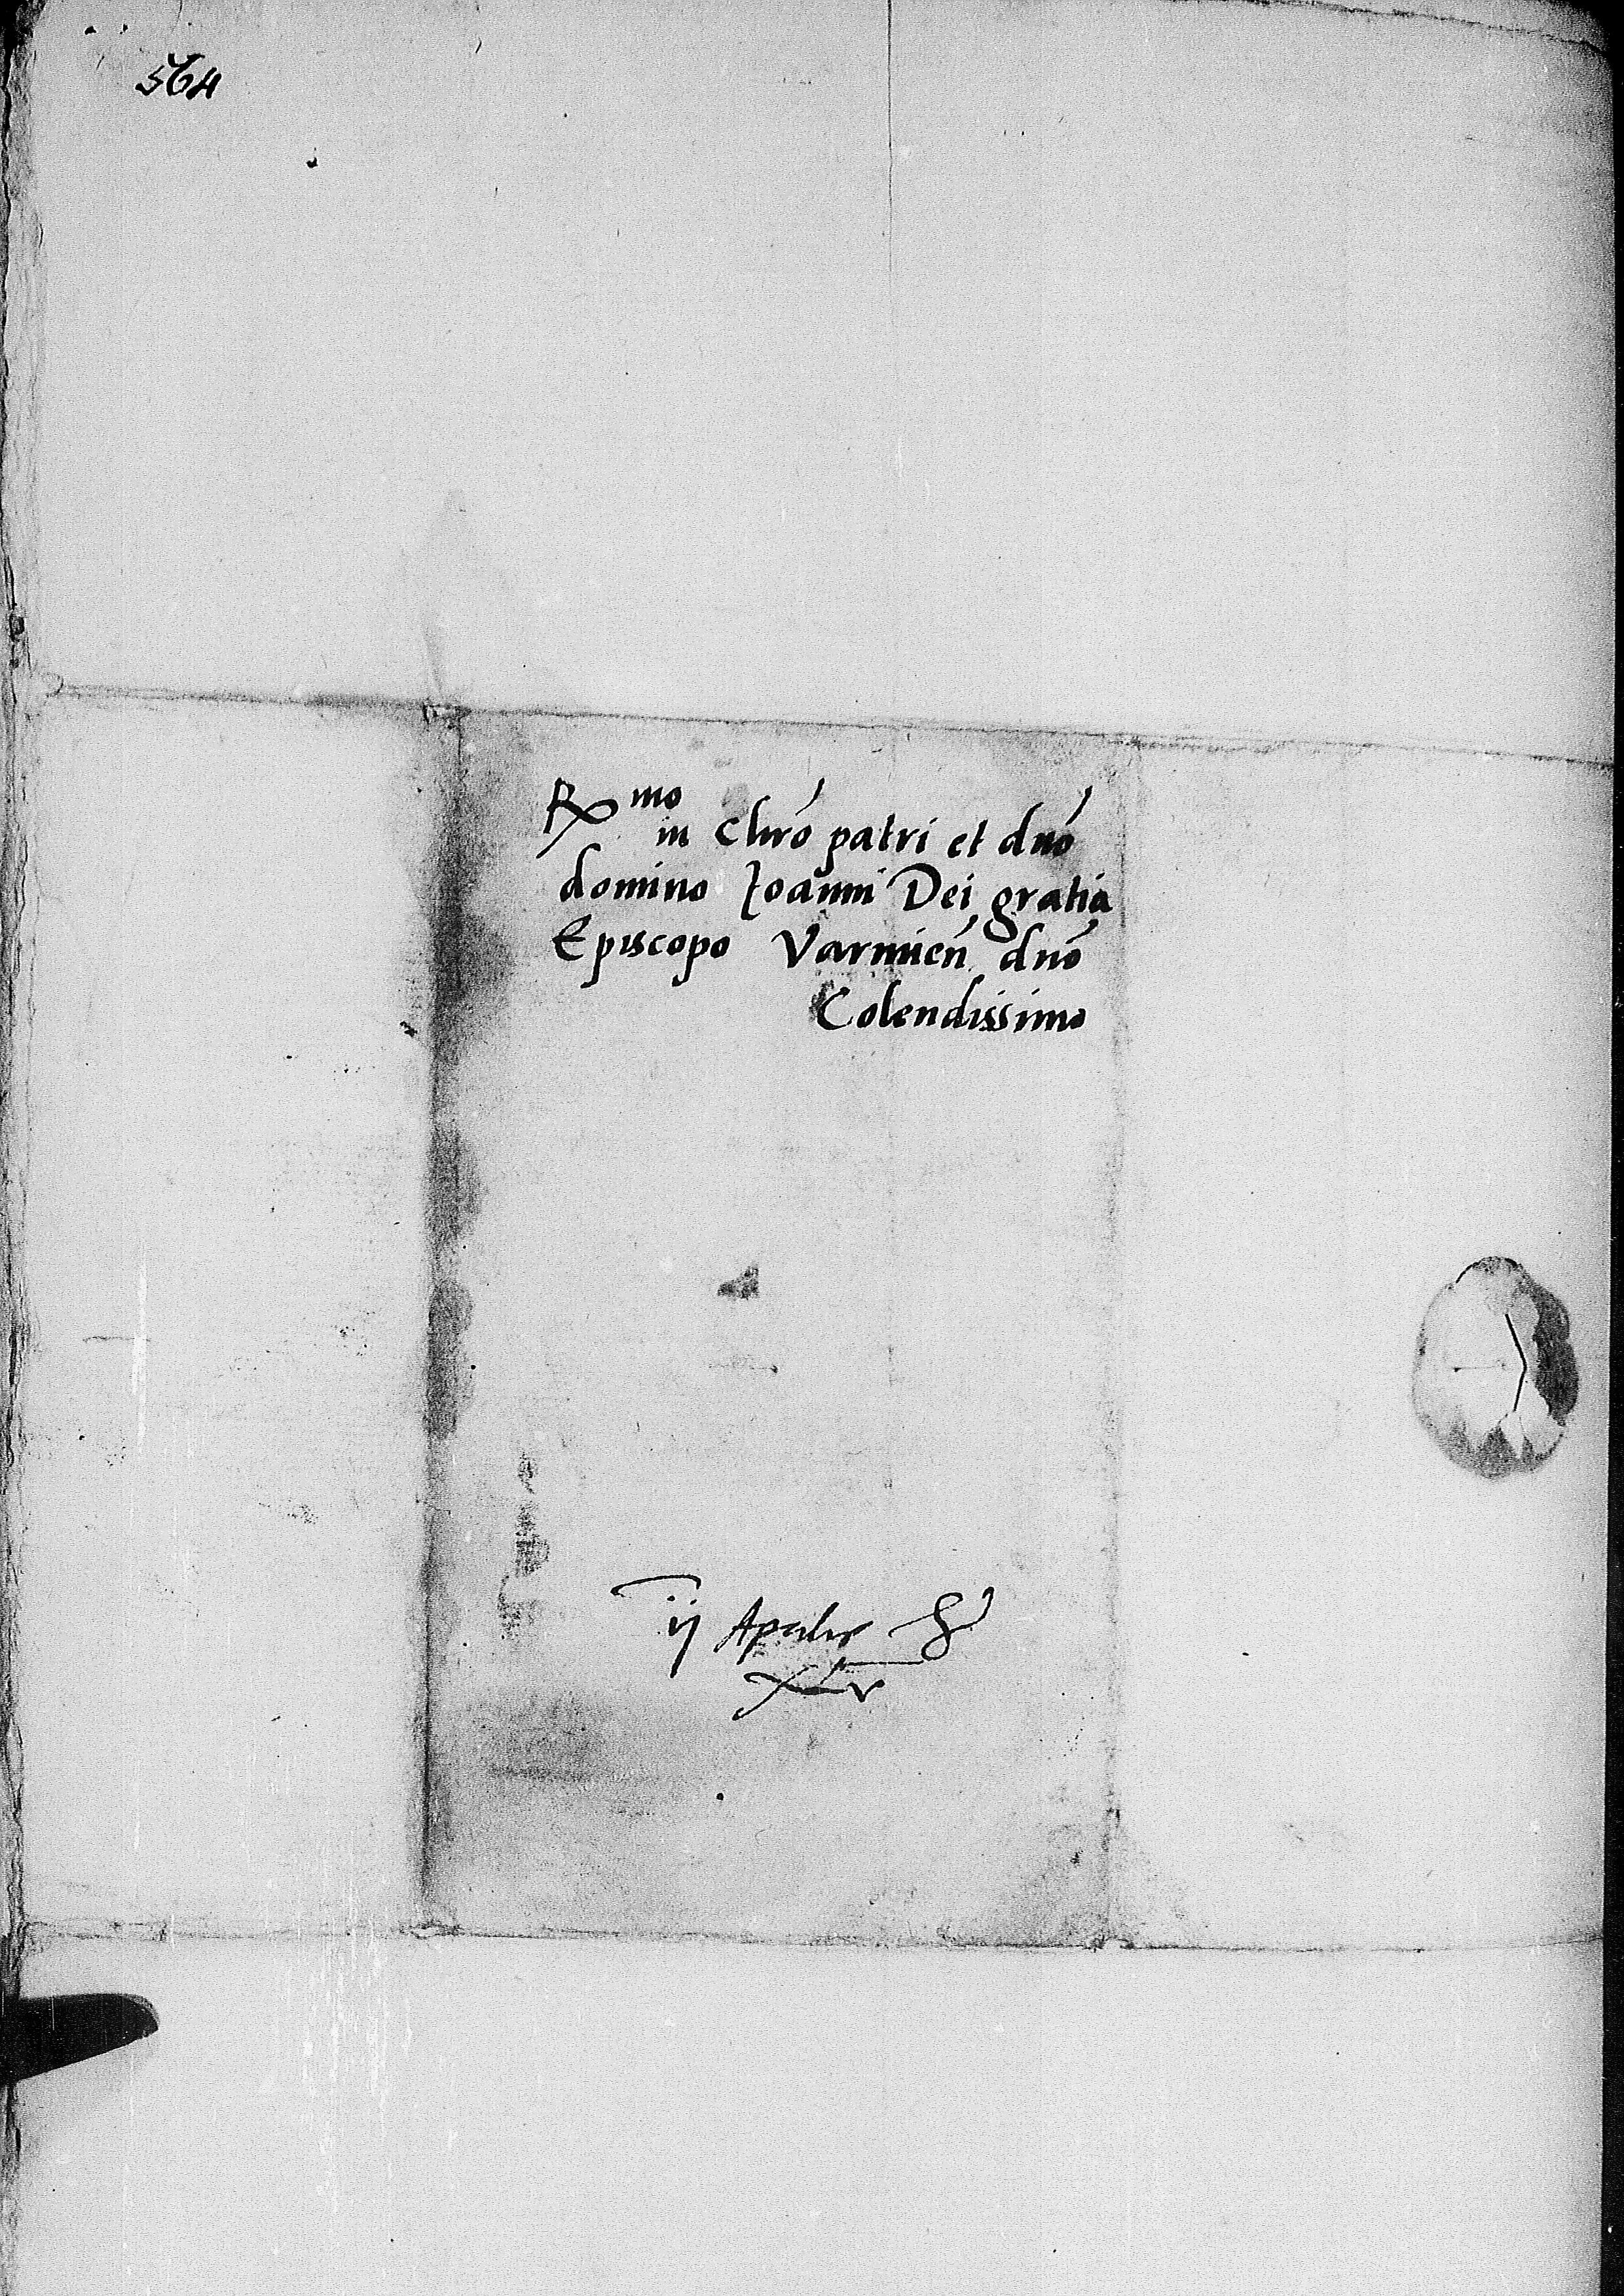 564
Rmo
in Chro patri et dno
domino Joanni Dei gratia
Episcopo Varmien dno
Colendissimo
ij Aprilis
xLv